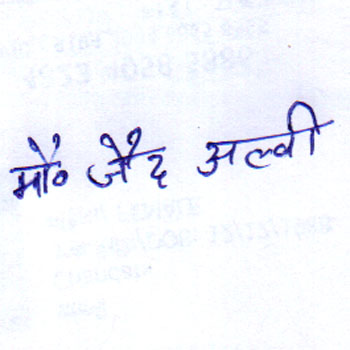 मौ॰ जैद अल्वी